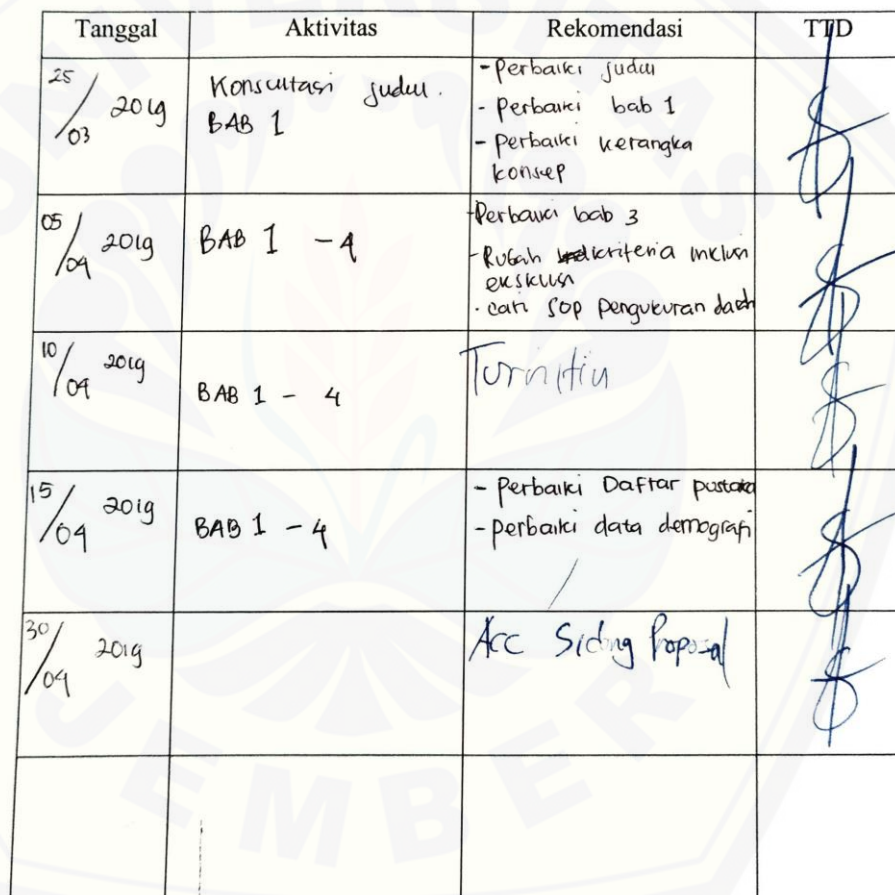 UNIVERSITAS
JEMBER
Tanggal Aktivitas Rekomendasi TTD
25/03 2019 Konsultasi judul. - Perbaiki judul
BAB 1 - Perbaiki bab 1
- Perbaiki kerangka
konsep
05/04 2019 BAB 1 - 4 - Perbaiki bab 3
- Rubah kriteria inklusi
eksklusi
- cari SOP pengukuran darah
10/04 2019 BAB 1 - 4 Turnitin
15/04 2019 BAB 1 - 4 - perbaiki Daftar pustaka
- perbaiki data demografi
30/04 2019 Acc Sidang Proposal